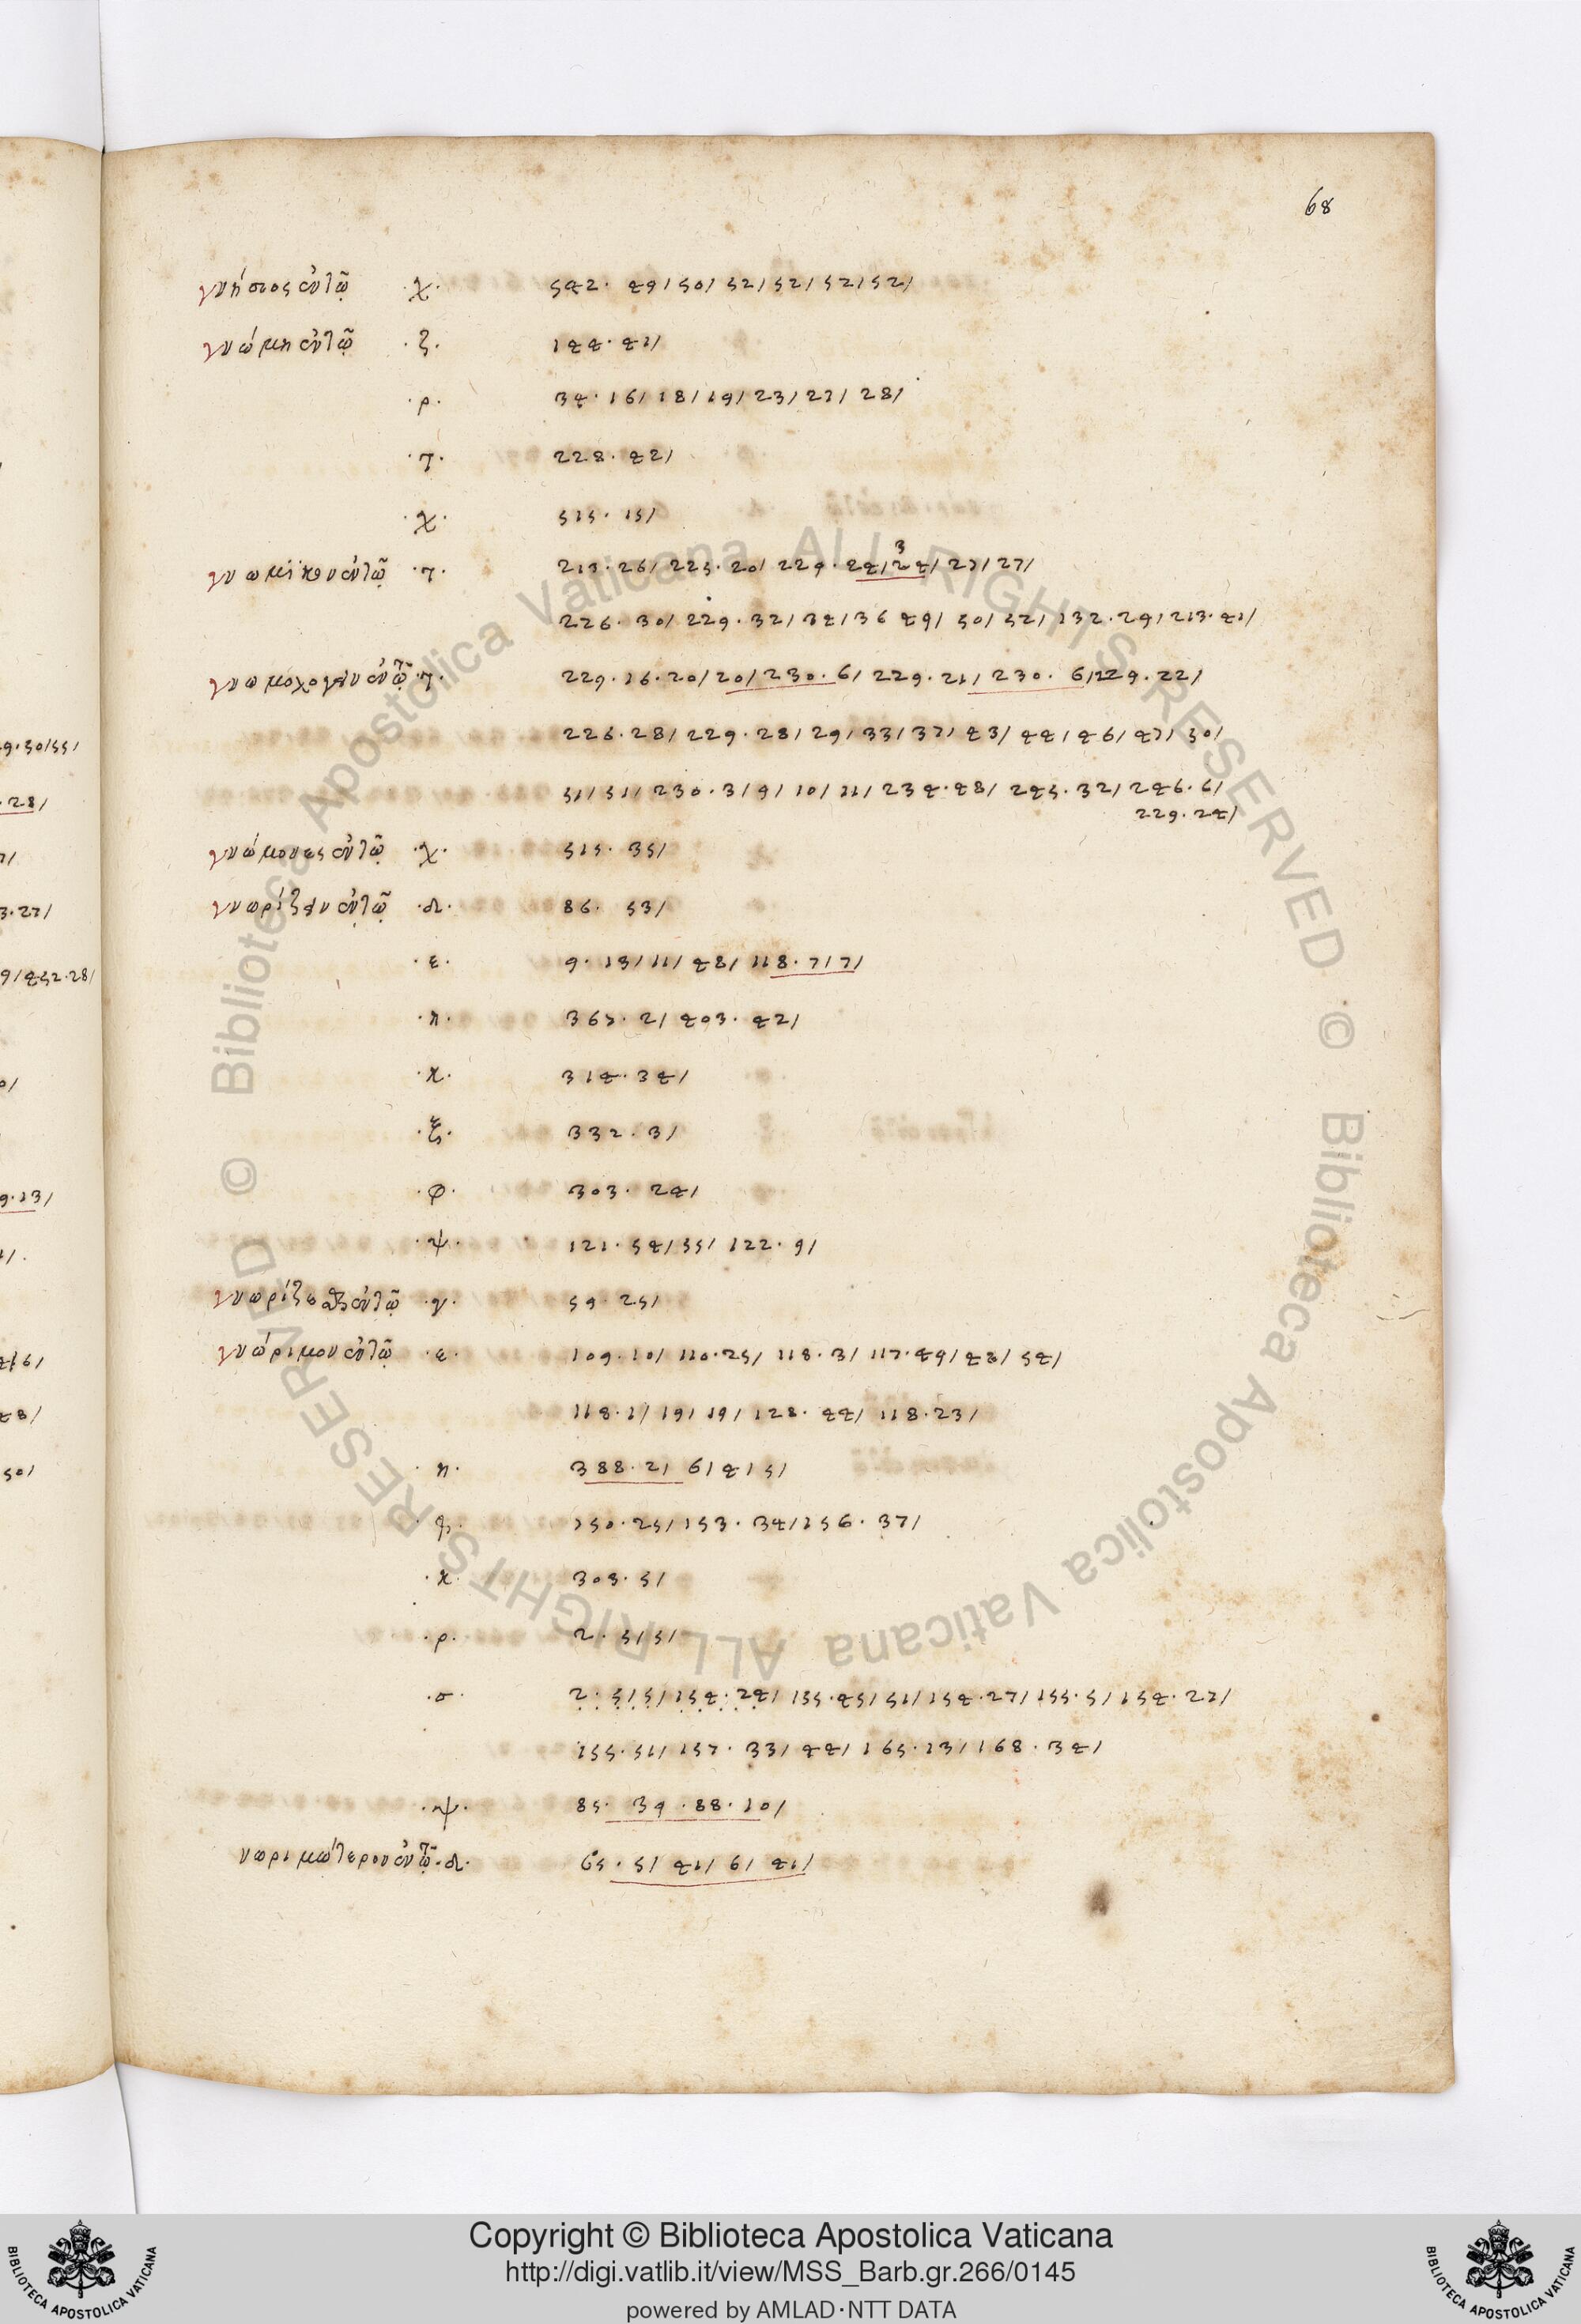 68
γνήσιος ἐν τῷ ·χ· 542· 49/50/52/52/52/52/
γνώμη ἐν τῷ ·ζ· 144·41/
·ρ· 34·16/18/19/23/27/28/
·τ· 228·42/
·χ· 515·15/
γνωμικὸν ἐν τῷ ·τ· 213·26/225·20/229·24/24/27/27/
3
226·30/229·32/34/36 49/50/52/132·29/213·41/
γνωμολογεῖν ἐν τῷ ·τ· 229·16·20/20/230·6/229·21/230·6/229·22/
226·28/229·28/29/33/37/43/44/46/47/50/
51/51/230·3/9/10/11/234·48/245·32/246·6/
229·24/
γνώμονες ἐν τῷ ·χ· 515·35/
γνωρίζειν ἐν τῷ ·δ· 86· 53/
·ε· 9·13/11/48/118·7/7/
·η· 365·2/403·42/
·κ· 314·34/
·ξ· 332·3/
·φ· 303·24/
·ψ· 121·54/55/122·9/
γνωρίζεσθαι ἐν τῷ ·γ· 59·25/
γνώριμον ἐν τῷ ·ε· 109·10/110·25/118·3/117·49/48/54/
118·1/19/19/128·44/118·23/
·η· 388·2/6/4/5/
150·25/153·34/156·37/
·κ· 303·5/
·ρ· 2·5/5/
·σ· 2·5/5/154·24/155·45/51/154·27/155·5/154·27/
155·51/157·33/44/165·13/168·34/
·ψ· 85· 39·88·10/
νωριμώτερον ἐν τῷ ·δ· 65·5/41/6/41/
9·50/55/
·28/
3·27/
9/452·28/
9·13/
Copyright © Biblioteca Apostolica Vaticana
http://digi.vatlib.it/view/MSS_Barb.gr.266/0145
powered by AMLAD·NTT DATA
BIBLIOTECA APOSTOLICA VATICANA
BIBLIOTECA APOSTOLICA VATICANA
© Biblioteca Apostolica Vaticana ALL RIGHTS RESERVED
© Biblioteca Apostolica Vaticana ALL RIGHTS RESERVED